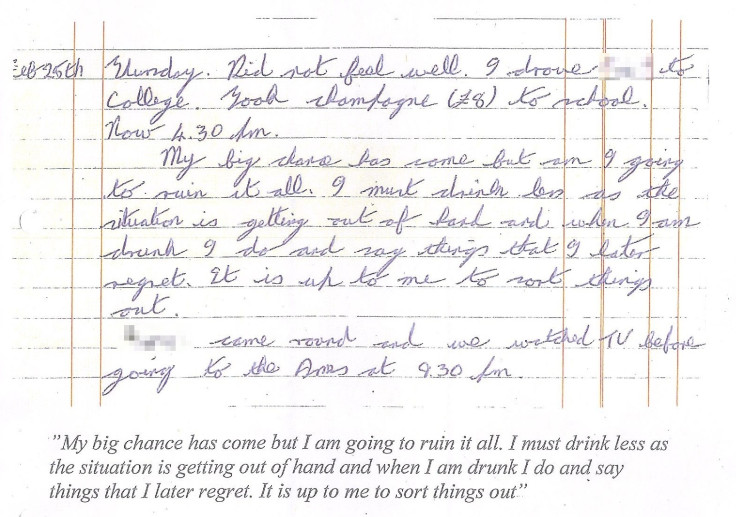 Feb 25th Thursday. Did not feel well. I drove to
College. Took champagne (£8) to school.
Now 4.30 pm.
My big chance has come but am I going
to ruin it all. I must drink less as the
situation is getting out of hand and when I am
drunk I do and say things that I later
regret. It is up to me to sort things
out.
came round and we watched TV before
going to the Arms at pm.
"My big chance has come but I am going to ruin it all. I must drink less as
the situation is getting out of hand and when I am drunk I do and say
things that I later regret. It is up to me to sort things out"